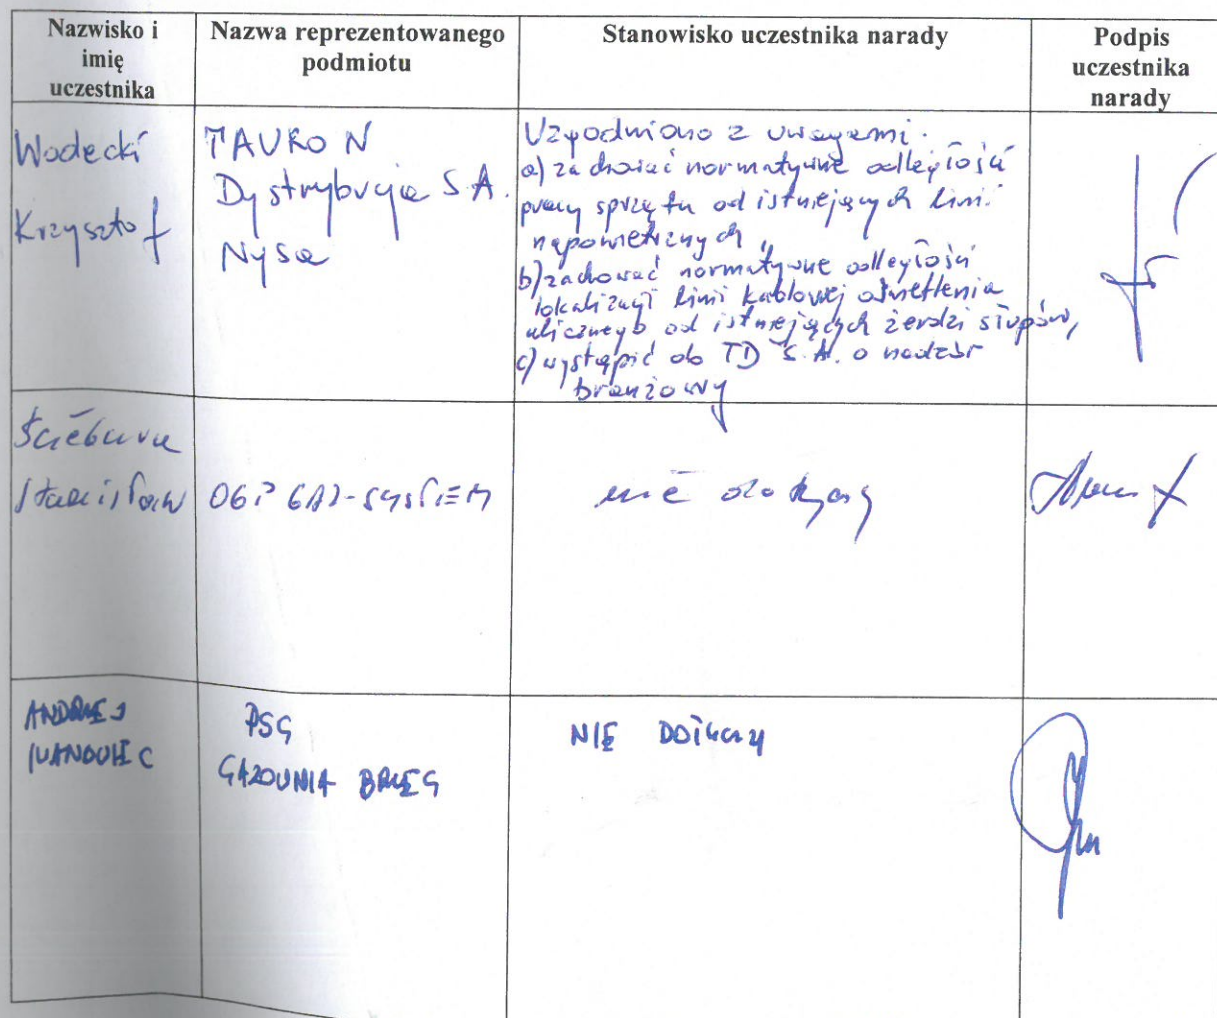 Nazwisko i
imię
uczestnika
Nazwa reprezentowanego
podmiotu
Stanowisko uczestnika narady
Podpis
uczestnika
narady
Wodecki
Krzysztof
TAURON
Dystrybucja S.A.
Nysa
Uzgodniono z uwagami.
a) zachować normatywne odległości
pracy sprzętu od istniejących linii
napowietrznych,
b) zachować normatywne odległości
lokalizacji linii kablowej oświetlenia
ulicznego od istniejących żerdzi słupów,
c) wystąpić do TD S.A. o nadzór
branżowy
Stanisław
OGP GAZ-SYSTEM
nie dotyczy
ANDRZEJ
PSG
GAZOWNIA BRZEG
NIE DOTYCZY